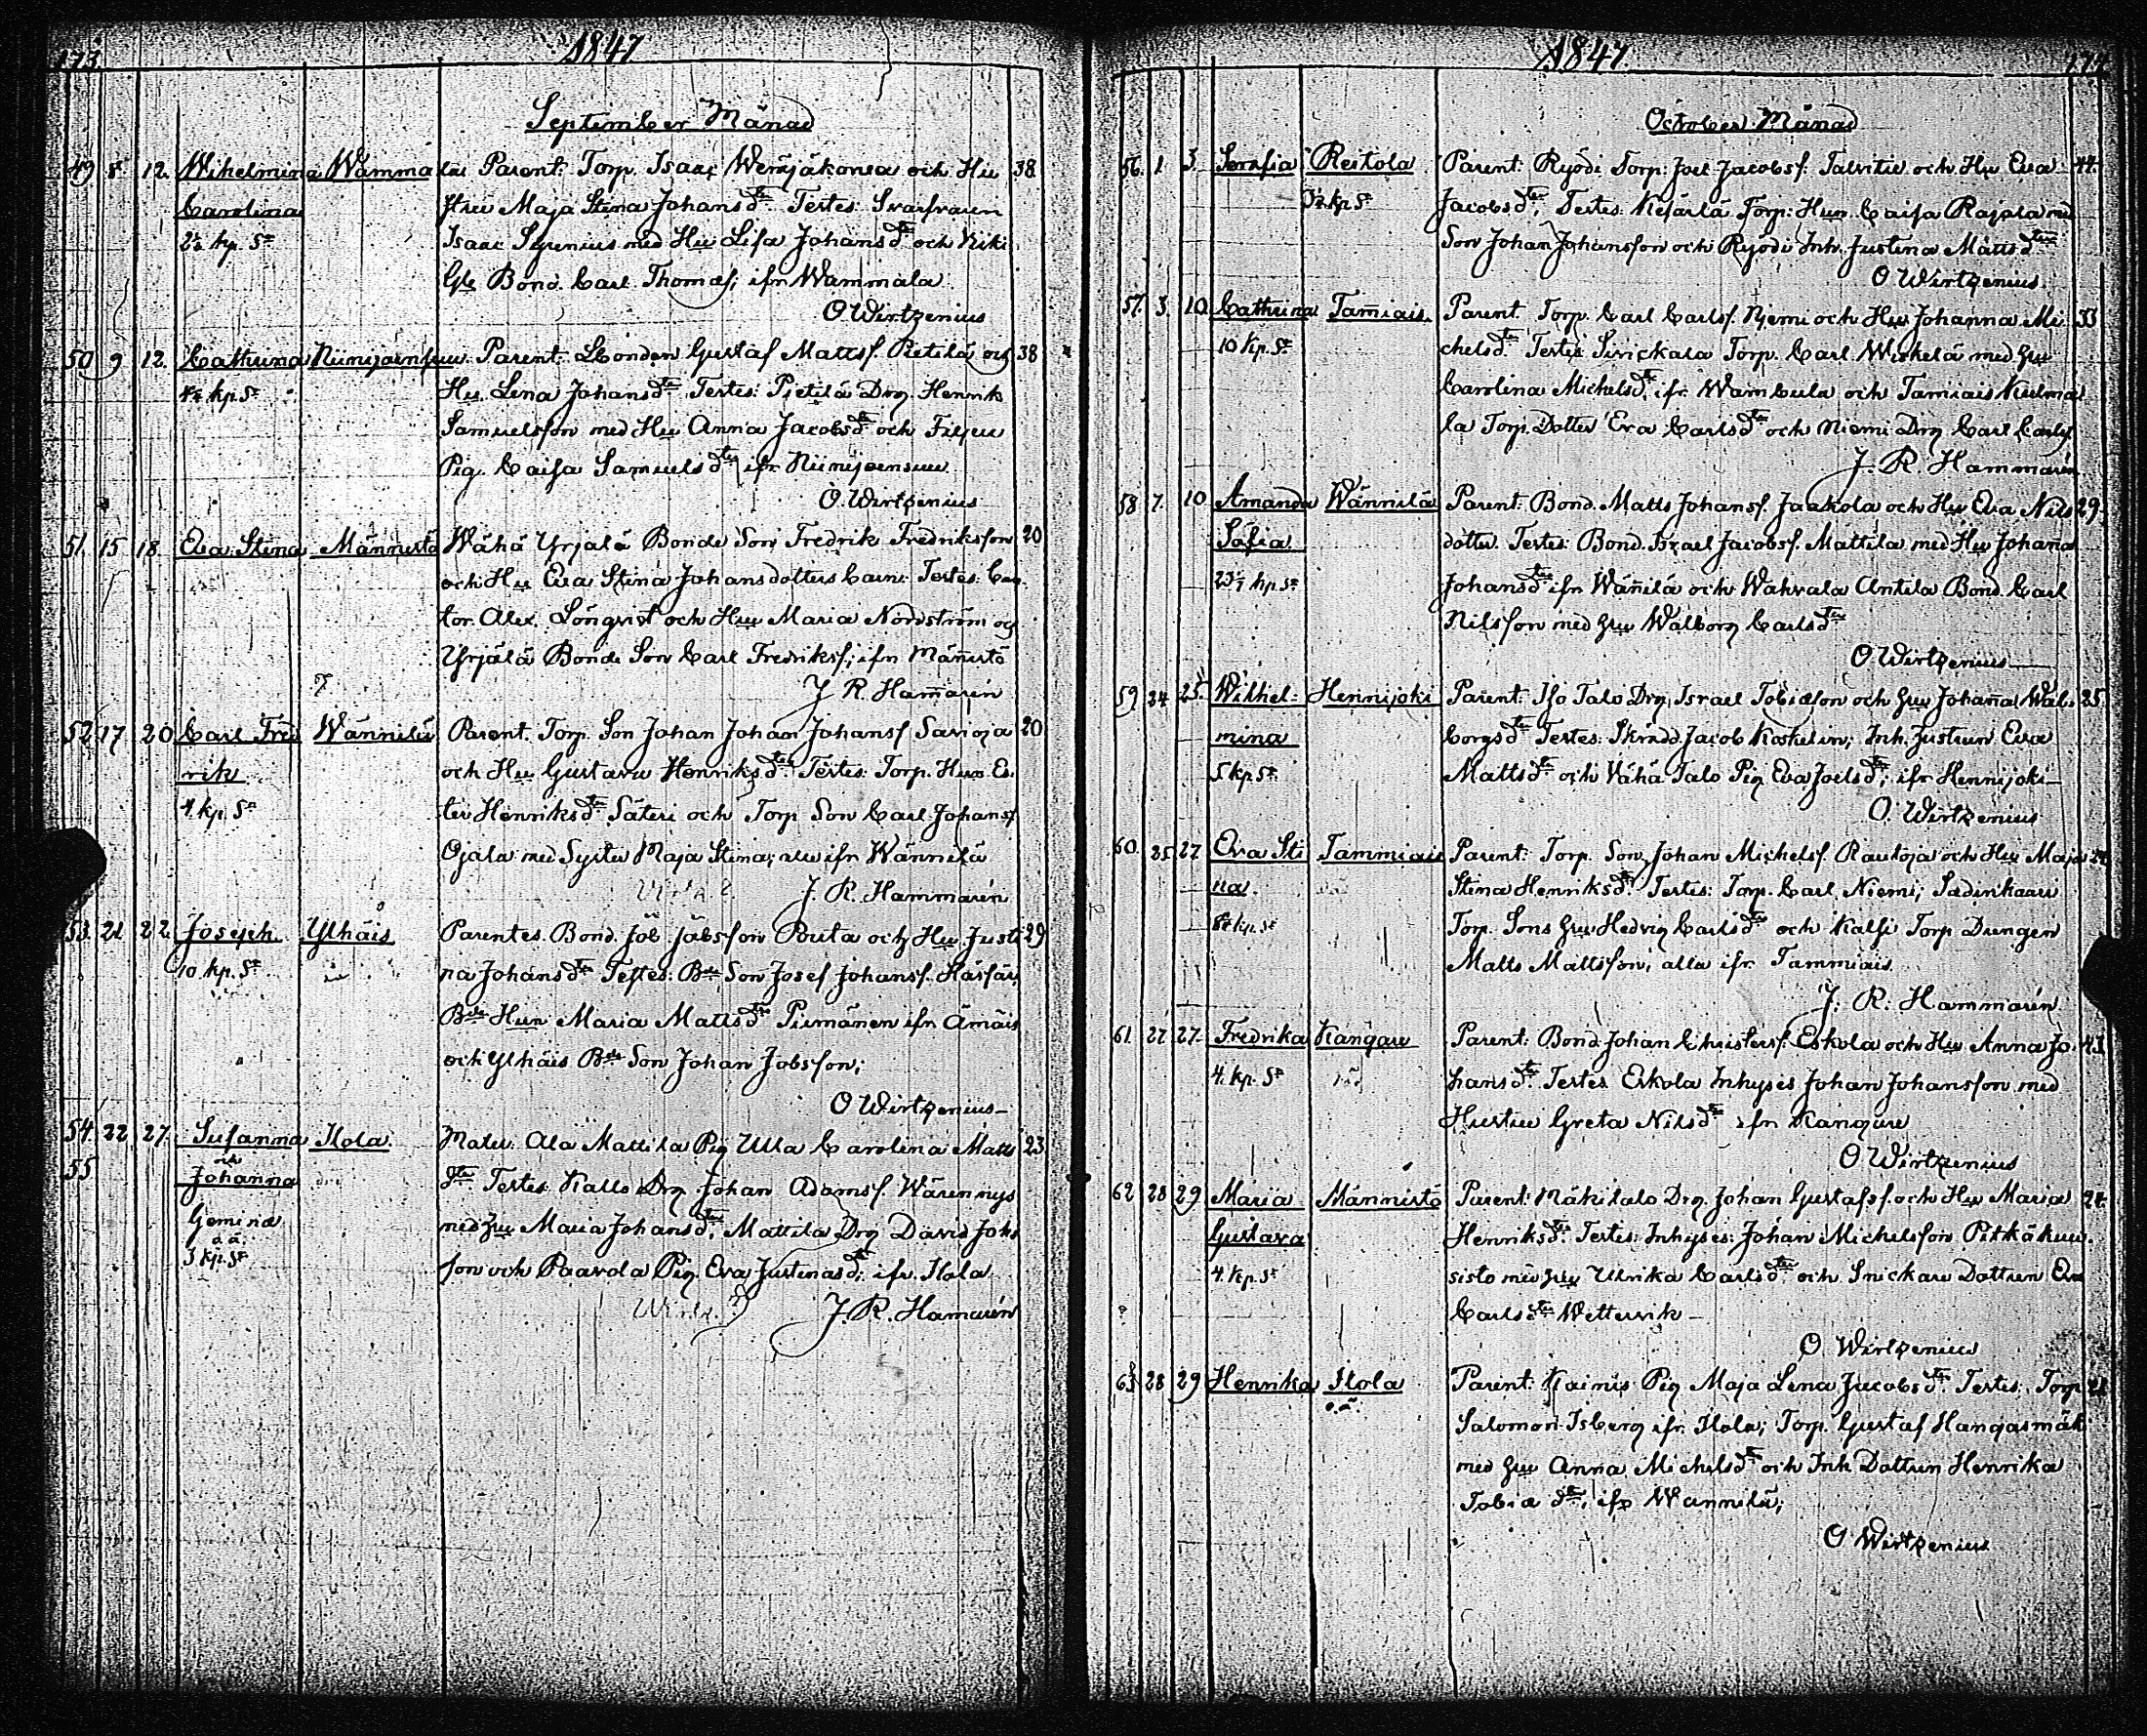 173.
1847
September Månad
49 8 12. Wihelmina Wammala Parent: Torp. Isaac Wensjäkonsa och Hu 38
Carolina stru Maja Stina Johansdtr Testes: Svarfvaren
2½ kp. Sr Isaac Syrenius med Hu Lisa Johansdtr och Riki
Gle Bond. Carl Thomæs; ifrn Wammala.
O Wirtzenius
50 9 12. Cathrina Niinijoensuu Parent: LBonden Gustaf Mattsf. Pietilä och 38
4½ kp. Sr Hu. Lena Johansdtr Testes: Pietilä Drg Henrik
Samuelsson med Hu Anna Jacobsdtr och
Pig. Caisa Samuelsdtr ifr Niinijoensuu
O. Wirtzenius
51. 15 18. Eva Stina Männistö Wähä Yrjälä Bonde Son Fredrik Fredriksson 20
och Hu Eva Stina Johansdotters barn: Testes: Can
tor Alex. Lönqvist och Hu Maria Nordström och
Yrjälä Bonde Son Carl Fredriksf; ifrn Männistö
J R. Hammarén
52. 17. 20 Carl Fred Wännilä Parent. Torp. Son Johan Johan Johansf Savioja 20
rik och Hu Gustava Henriksdtr Testes: Torp. Hus Es
4 kp. Sr ter Henriksdtr Säteri och Torp Son Carl Johansf
Ojala med Syster Maja Stina; alla ifrn Wännilä
J. R. Hammarén
53. 21 22. Joseph Ylhäis Parentes. Bond. Job Jobsson Routa och Hu Justi 29
10. kp. Sr na Johansdtr Testes: Bde Son Josef Johansf.
Bde Hun Maria Mattsdtr Piimänen ifrn Ämäis
och Ylhäis Bde Son Johan Jobsson;
O Wirtzenius
54. 22 27. Susanna Ilola Mater: Ala Mattila Pig Ulla Carolina Matts 23
55 och dtr Testes Kallo Drg Johan Adamsf. Wärennys
Johanna med Hu Maria Johansdtr, Mattila Drg David Johs
Gemina son och Paavola Pig. Eva Justinasdtr; ifr. Ilola
o.ä.
3 kp. Sr J. R. Hammarén
174
1847.
October Månad
56. 1. 3. Serafia Reitola Parent: Ryödi Torp: Joel Jacobsf. Talvitie och Hu Eva 44.
kp Sr Jacobsdtr, Testes: Kesärlä Torp: Hun. Caisa Rajala med
Son Johan Johansson och Ryödi Inh. Justina Mattsdtr
O Wirtzenius
57. 3. 10. Cathrina Tamiais. Parent. Torp. Carl Carlsf. Njemi och Hu Johanna Mi 33
10 kp. Sr chelsdtr. Testes Sirickala Torp. Carl Wiskelä med Hu
Carolina Michelsdtr, ifr. Wambula och Tamiais Kulma
la Torp. Dotter Eva Carlsdtr och Niemi Drg Carl Carlsf
J. R. Hammarén
58 7. 10 Amanda Wännilä Parent: Bond. Matts Johansf. Jaakola och Hu Eva Nils 29.
Sofia dotter. Testes: Bond. Israel Jacobsf. Mattila med Hu Johana
kp. Sr Johansdtr ifrn Wännilä och Wahvala Antila Bond. Carl
Nilsson med Hu Walborg Carlsdtr
O Wirtzenius
59 24 25. Wilhel: Hennijoki Parent: Iso Talo Drg, Israel Tobiasson och Hu Johanna Wal 25.
mina borgsdtr Testes: Skrädd. Jacob Koskelin; Inh. Justrun Eva
5 kp Sr. Mattsdtr och Vähä Talo Pig Eva Joelsdtr, ifr Hennijoki
O. Wirtzenius
60. 25 27 Eva Sti Tammiais Parent: Torp. Son, Johan Michelsf. Rautoja och Hu Maja
na. Stina Henriksdtr. Testes: Torp. Carl Niemi; Sadinkaari
kp. Sr Torp. Sons Hu Hedvig Carlsdtr och Kalfi Torp Drengen
Matts Mattsson, alla ifr. Tammiais
J. R. Hammarén
61. 22 27. Fredrika Kangare Parent: Bond. Johan Christersf. Eskola och Hu Anna Jo 43.
4. kp. Sr hansdtr. Testes Eskola Inhyses Johan Johansson med
Hustru Greta Nilsdtr ifrn Kangare
O Wirtzenius
62 28 29. Maria Männistö Parent: Mäkitalo Drg. Johan Gustafsf. och Hu Maria 24.
Gustava Henriksdtr. Testes: Inhyses: Johan Michelsson Pitkäkuu
4. kp. Sr sisto med Hu Ulrika Carlsdtr och Snickare Dottren Eva
Carlsdtr Wettervik
O Wirtzenius
63 28 29 Henrika Ilola Parent: Kainis Pig Maja Lena Jacobsdtr. Testes: Torp 21
o.ä. Salomon Isberg ifr. Ilola; Torp. Gustaf Hangasmäk
med Hu Anna Michelsdtr och Inh Dottren Henrika
Tobiædtr, ifr Wännilä;
O Wirtzenius